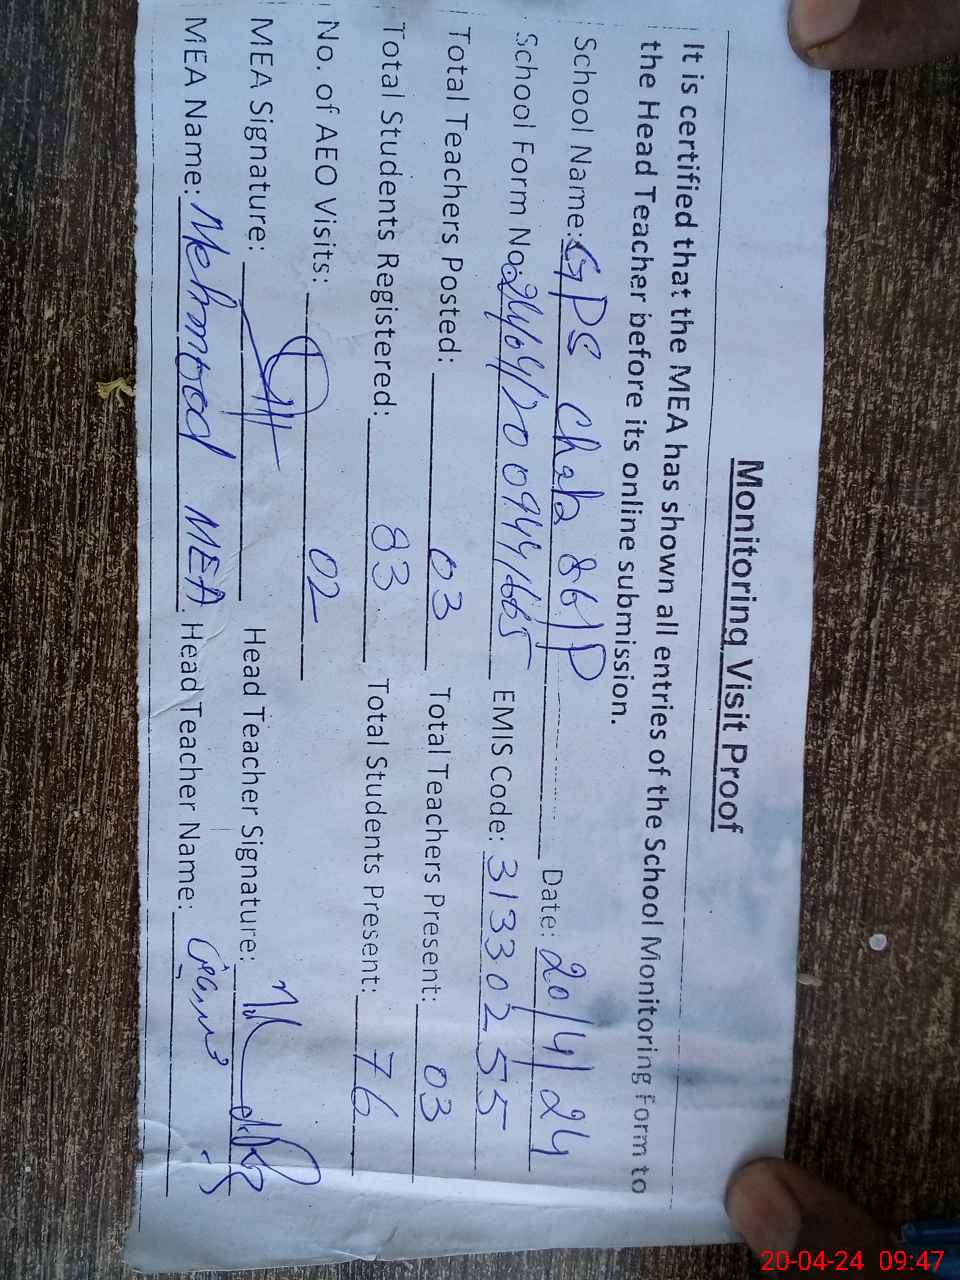 Monitoring Visit Proof
It is certified that the MEA has shown all entries of the School Monitoring Form to
the Head Teacher before its online submission.
School Name: GPS Chak 86/P Date: 20/4/24
School Form No: EMIS Code: 31330255
Total Teachers Posted: 03 Total Teachers Present: 03
Total Students Registered: 83 Total Students Present: 76
No. of AEO Visits: 02
MEA Signature: Head Teacher Signature:
MEA Name: Mehmood MEA Head Teacher Name:
20-04-24 09:47